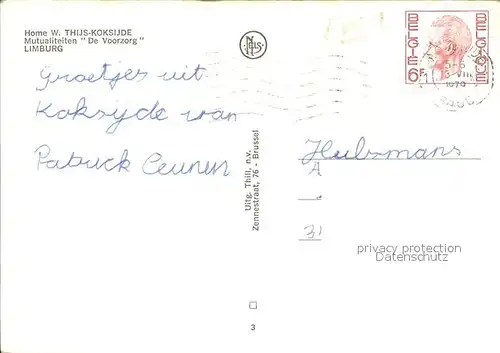 Home W. THIJS-KOKSIJDE
Mutualiteiten "De Voorzorg"
LIMBURG
Groetjes uit
Koksijde van
Patrick Ceunen
Uitg. Thill, n.v.
Zennestraat, 76 - Brussel
3
BELGIE
BELGIQUE
6F
VIII
Hubsmans
A
31
privacy protection
Datenschutz